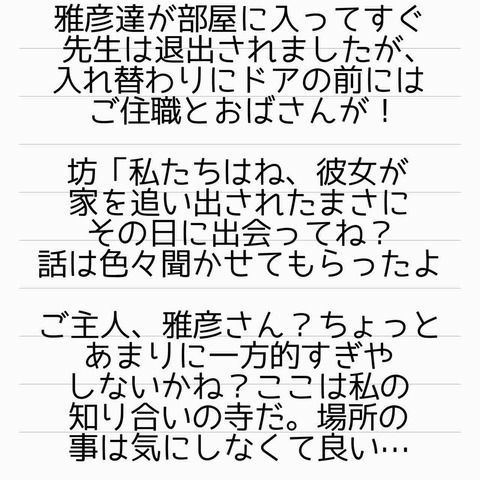 雅彦達が部屋に入ってすぐ
先生は退出されましたが、
入れ替わりにドアの前には
ご住職とおばさんが！
坊「私たちはね、彼女が
家を追い出されたまさに
その日に出会ってね？
話は色々聞かせてもらったよ
ご主人、雅彦さん？ちょっと
あまりに一方的すぎや
しないかね？ここは私の
知り合いの寺だ。場所の
事は気にしなくて良い…